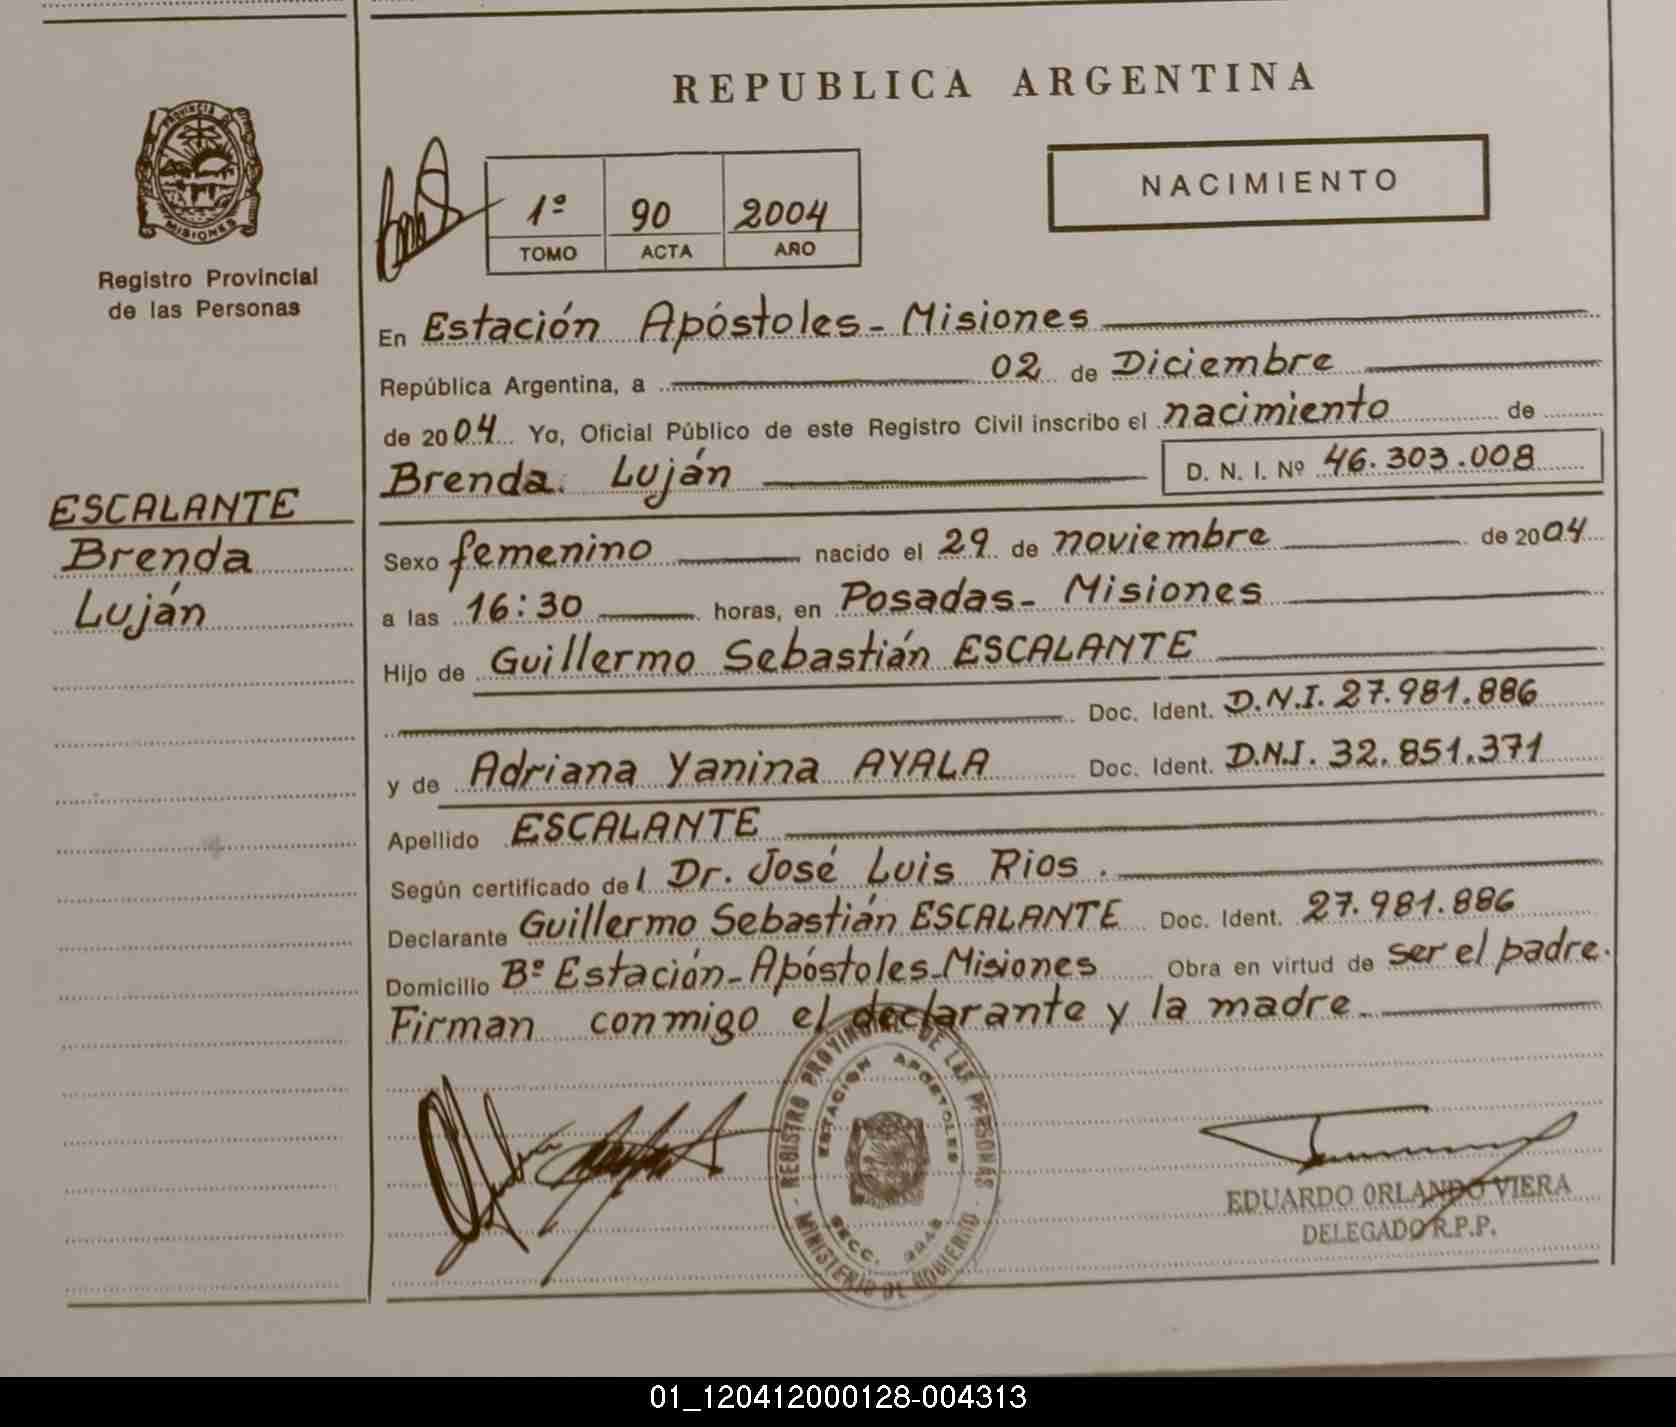 REPUBLICA ARGENTINA
PROVINCIA DE
MISIONES
Registro Provincial
de las Personas
1º 90 2004
TOMO ACTA AÑO
NACIMIENTO
En Estación Apóstoles - Misiones
República Argentina, a 02 de Diciembre
de 2004 Yo, Oficial Público de este Registro Civil inscribo el nacimiento de
Brenda Luján D. N. I. Nº 46.303.008
ESCALANTE
Brenda
Luján
Sexo femenino nacido el 29 de noviembre de 2004
a las 16:30 horas, en Posadas - Misiones
Hijo de Guillermo Sebastián ESCALANTE
Doc. Ident. D.N.I. 27.981.886
y de Adriana Yanina AYALA Doc. Ident. D.N.I. 32.851.371
Apellido ESCALANTE
Según certificado del Dr. José Luis Rios.
Declarante Guillermo Sebastián ESCALANTE Doc. Ident. 27.981.886
Domicilio Bº Estación - Apóstoles - Misiones Obra en virtud de ser el padre.
Firman conmigo el declarante y la madre.
REGISTRO PROVINCIAL DE LAS PERSONAS
ESTACION APOSTOLES
SECC.
MINISTERIO DE GOBIERNO
EDUARDO ORLANDO VIERA
DELEGADO R.P.P.
01_120412000128-004313